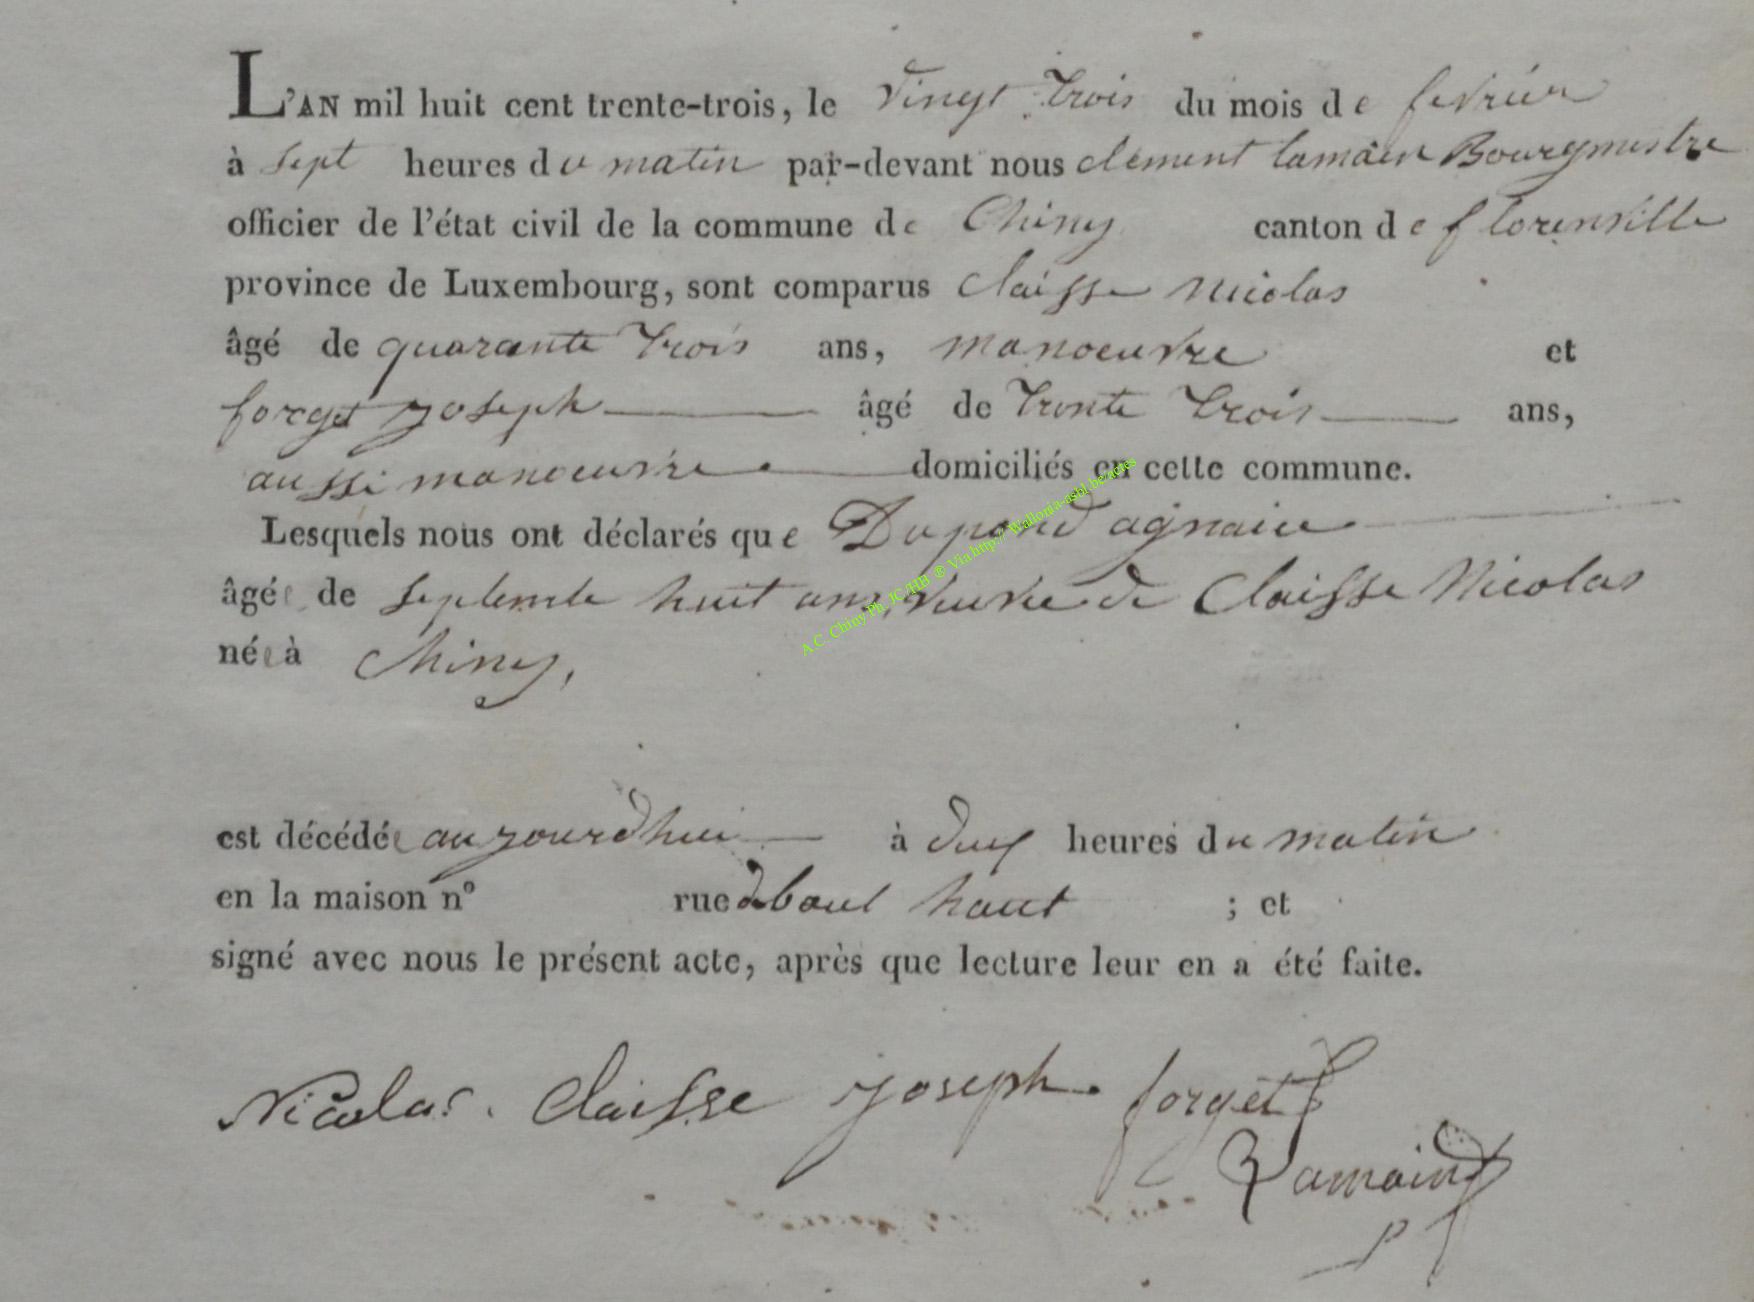 L'AN mil huit cent trente-trois, le vingt trois du mois de fevrier
à sept heures du matin par-devant nous clement lamain Bourgmestre
officier de l'état civil de la commune de Chiny canton de florenville
province de Luxembourg, sont comparus claisse nicolas
âgé de quarante trois ans, manoeuvre et
forget joseph âgé de trente trois ans,
aussi manoeuvre domiciliés en cette commune.
Lesquels nous ont déclarés que Dupond agnaice
âgée de septente huit ans, veuve de Claisse Nicolas
née à Chiny,
A.C. Chiny Ph. JC/HB ® Via http:// Wallonia-asbl.be/actes
est décédée aujourdhui à deux heures du matin
en la maison nº rue haut ; et
signé avec nous le présent acte, après que lecture leur en a été faite.
Nicolas. Claisse joseph. forget
Lamain